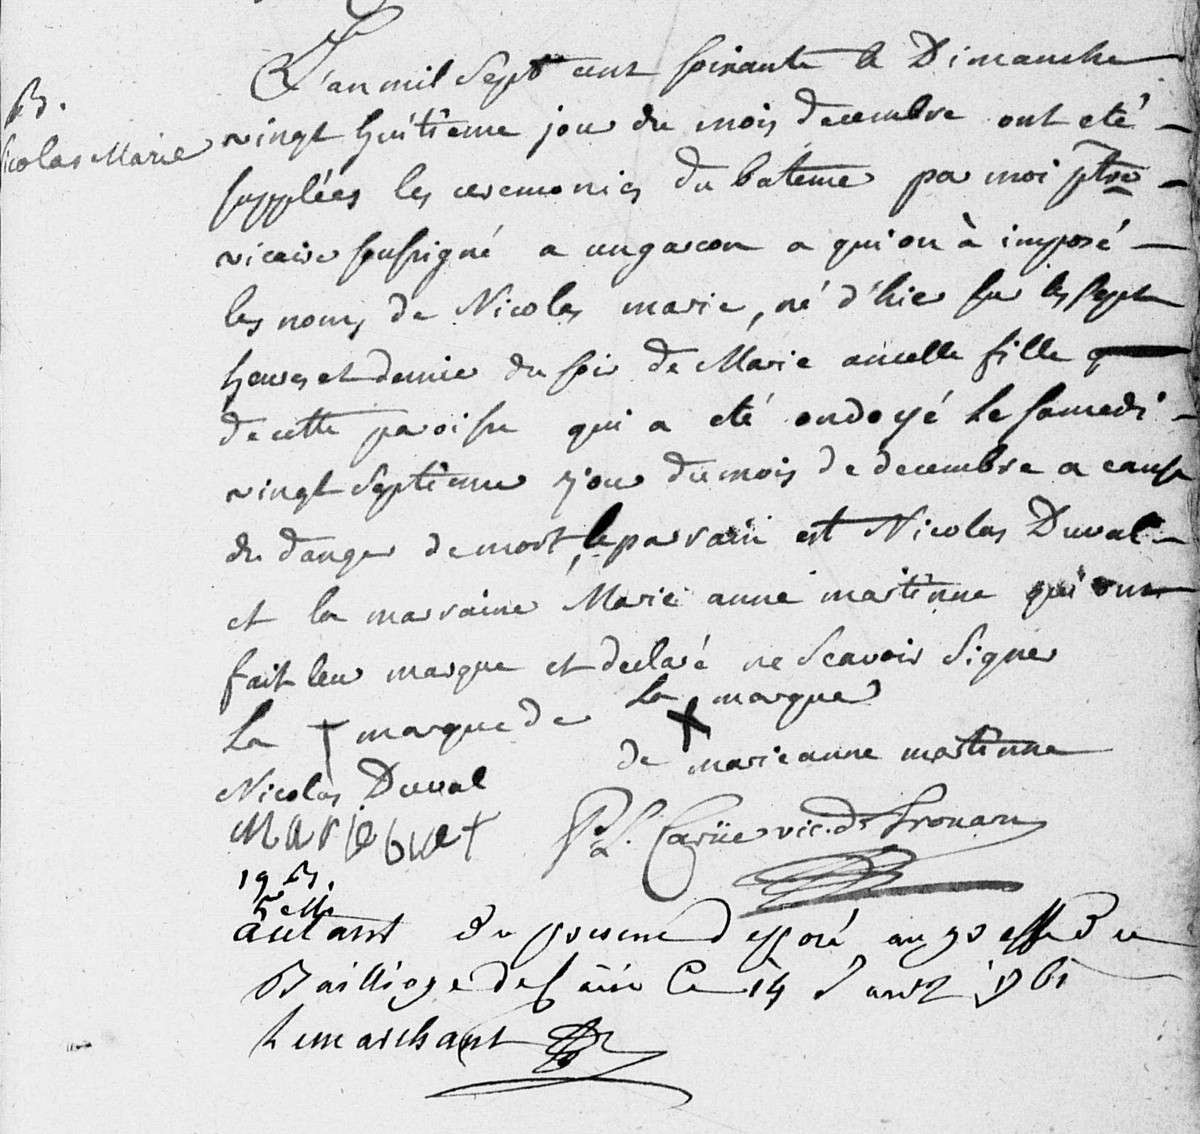 B.
Nicolas Marie
L'an mil Sept cent soixante le Dimanche
vingt huitieme jour du mois decembre ont eté
supplées les ceremonies du bateme par moi ptre
vicaire soussigné a un garcon a qui on à imposé
les noms de Nicolas marie, né d'hier sur les sept
heures et demie du soir de Marie ancelle fille
de cette paroisse qui a eté ondoyé le samedi
vingt septieme jour du mois de decembre a cause
du danger de mort, le parrain est Nicolas Duval
et la marraine Marie anne martinne qui ont
fait leur marque et declaré ne Scavoir Signer
La + marque de
Nicolas Duval
La + marque
de marie anne martinne
Marie buet
P. L. Carüe vic. de
19 B.
autant du present deposé au greffe du
Bailliage de ce 14 1761
Lemarchant